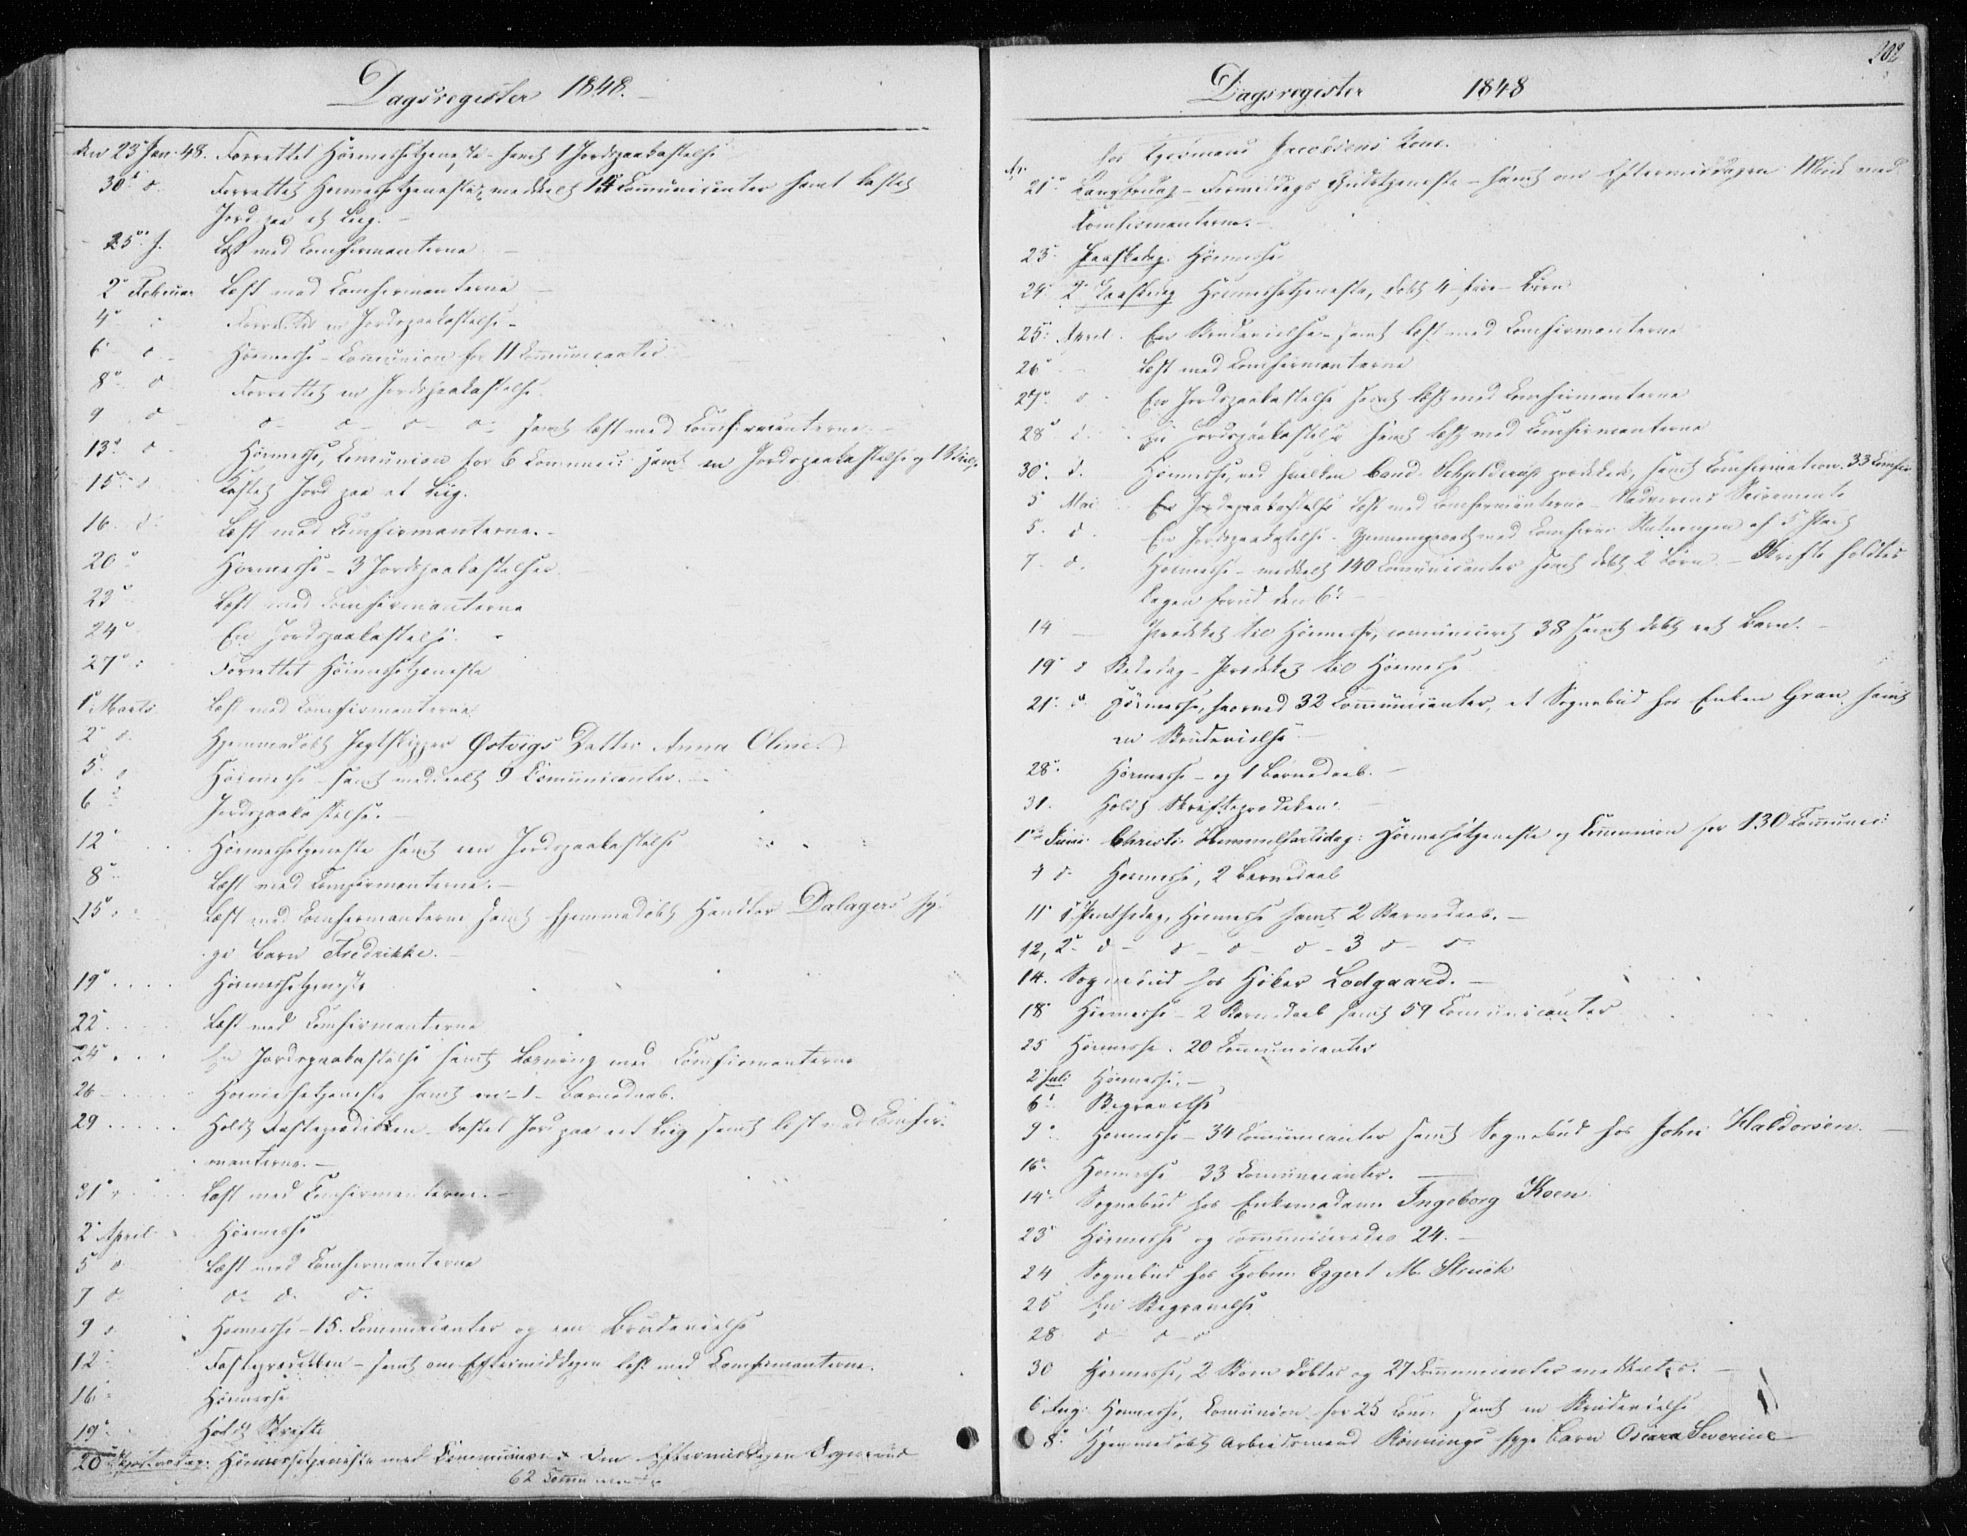 Dagsregister 1848.
den 23 Jan. 48. Forrettet Höimessetjeneste samt 1 Jordspaakastelse
30te d. Forrettet Höimessetjeneste, meddelt 14 Communicanter samt kastet
Jord paa et Liig.
25de J. Læst med Confirmanterne
2den Februar Læst med Confirmanterne
4de Forrettet en Jordspaakastelse
6 d. Höimesse - Communion for 11 Communicanter
8de d. Forrettet en Jordspaakastelse
9 d. d d d d samt læst med Confirmanterne
13de d. Höimesse, Communion for 6 Communic: samt en Jordspaakastelse og 1
15 d Kastet Jord paa et Liig.
16. d. Læst med Confirmanterne.
20de Höimesse - 3 Jordspaakastelser
23de Læst med Confirmanterne
24de En Jordspaakastelse.
27de Forrettet Höimessetjeneste
1ste Marts Læst med Confirmanterne
2den d. Hjemmedøbt Jagtskipper Østvigs Datter Anna Oline.
5te d Höimesse samt meddeelt 9 Communicanter.
6te Jordspaakastelse.
12te Höimessetjeneste samt een Jordspaakastelse
8de Læst med Confirmanterne.
15de Læst med Confirmanterne samt hjemmedøbt Handler Dalagers sy-
ge Barn Fredrikke.
19de Höimessetjeneste
22 Læst med Confirmanterne
24 En Jordspaakastelse samt Læsning med Confirmanterne
26 Höimessetjeneste samt en - 1 - Barnedaab.
29 Holdt Fasteprediken - kastet Jord paa eet Liig samt læst med Confir-
manterne.
31te Læst med Confirmanterne.
2den April Höimesse
5 d Læst med Confirmanterne
7 d d d. d.
9 d Höimesse - 15. Communicanter og een Brudevielse
12te Fasteprediken - samt om Eftermiddagen læst med Confirmanterne.
16 Höimesse
19de Holdt Skrifte
20 Skjærtorsdag. Höimessetjeneste med Communion. Om Eftermiddagen Sognebud
62 Communicanter
202
Dagsregister 1848
hos Jacobsens Kone.
21de Langfredag - Formiddags Gudstjeneste - samt om Eftermiddagen med
Confirmanterne.
23de Paaskedag. Höimesse
24 2den Paaskedag Höimessetjeneste, døbt 4 - fire - Børn
25de April. En Brudevielse samt læst med Confirmanterne
26de Læst med Confirmanterne
27de d En Jordspaakastelse samt læst med Confirmanterne
28de d. En Jordspaakastelse samt læst med Confirmanterne
30te d. Höimesse, ved hvilken Cand. prædikede, samt Confirmation. 33 Confir
5 Mai En Jordspaakastelse læst med Confirmanterne Nadverens Sacramente
5. d En Jordspaakastelse.
7. d. Höimesse - meddelt 140 Communicanter samt døbt 2 Børn - Skrifte holdtes
Dagen forud den 6te
14 Prædiket til Höimesse, communiceret 38 samt døbt eet Barn.
19de d Bededag - Prædiket til Höimesse
21de d Höimesse, hvorved 32 Communicanter, et Sognebud hos Enken Gran samt
en Brudevielse
28de Höimesse - og 1 Barnedaab.
31. Holdt Skrifteprediken.
1ste Juni Christi Himmelfartsdag: Höimessetjeneste og Communion for 130 Communic:
4 d Höimesse, 2 Barnedaab
11 1ste Pintsedag, Höimesse samt 2 Barnedaab.
12, 2den d - d - d - d - 3 d - d
14. Sognebud hos Høker Lodgaard.
18 Höimesse - 2 Barnedaab samt 59 Communicanter
25 Höimesse. 20 Communicanter
2 Juli Höimesse.
6te Begravelse
9de Höimesse - 34 Communicanter samt Sognebud hos John Haldorsen.
16de Höimesse 33 Communicanter.
14de Sognebud hos Enkemadame Ingeborg Koen
23de Höimesse og communiceredes 24.
24 Sognebud hos Kjøbm. Eggert M. Struck
25 En Begravelse
28. d - d - d
30 Höimesse, 2 Børn døbtes og 27 Communicanter meddeeltes.
6 Aug: Höimesse, Communion for 25 Com. samt en Brudevielse
8de Hjemmedøbt Arbeidsmand Rønnings syge Barn Oscara Severine